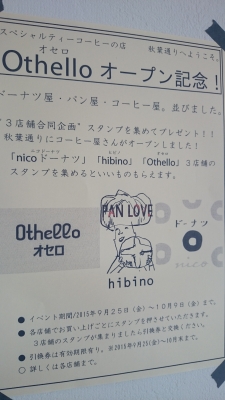 スペシャルティーコーヒーの店
秋葉通りへようこそ。
オセロ
Othello オープン記念！
ドーナツ屋・パン屋・コーヒー屋。並びました。
"３店舗合同企画" スタンプを集めてプレゼント！！
秋葉通りにコーヒー屋さんがオープンしました！
「nicoドーナツ」「hibino」「Othello」３店舗の
スタンプを集めるといいものもらえます。
Othello
オセロ
PAN LOVE
hibino
ドーナツ
● イベント期間/2015年９月２５日（金）～１０月９日（金）まで。
● 各店舗でお買い上げごとにスタンプを押させていただきます。
３店舗のスタンプが集まりましたら引換券と交換ください。
● 引換券は有効期限有り。
○ 詳しくは各店舗まで。